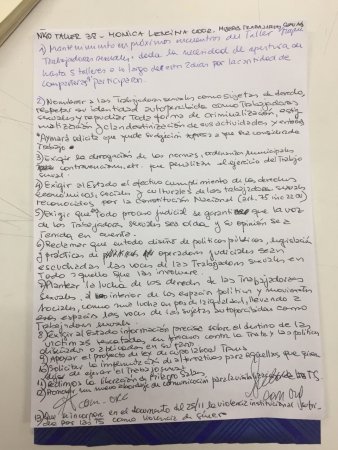 TALLER 38 - MONICA LENCINA
1) Mantenimiento en próximos encuentros del Taller "Mujeres
Trabajadoras sexuales, dada la necesidad de apertura de
hasta 5 talleres a lo largo de por la cantidad de
compañeras participen.
2) Nombrar a las Trabajadoras sexuales como sujetas de derecho,
respetar su identidad autopercibida como Trabajadoras
sexuales y repudiar toda forma de criminalización, estig-
matización y clandestinización de sus actividades y entornos
que se considerada
Trabajo.
3) Exigir la derogación de las normas, ordenanzas municipales
contravenciones, etc que penalizan el ejercicio del Trabajo
sexual.
4) Exigir al Estado el efectivo cumplimiento de los derechos
económicos, sociales y culturales de las trabajadoras sexuales
reconocidos por la Constitución Nacional (art. 75 inc 22)
5) Exigir que todo proceso judicial se garantice que la voz
de las Trabajadoras sexuales sea oída y su opinión sea
Tenida en cuenta.
6) Reclamar que en todo diseño de políticas públicas, legislación
y prácticas de operadores judiciales sean
escuchadas las voces de las Trabajadoras sexuales en
Todo aquello que las involucre.
7) Plantear la lucha de los derechos de las Trabajadoras
sexuales, al interior de los espacios políticos y movimientos
sociales, como una lucha en pos de la igualdad, llevando a
esos espacios las voces de las sujetas autopercibidas como
Trabajadoras sexuales.
8) Exigir al Estado información precisa sobre el destino de las
víctimas rescatadas, en el marco contra la Trata y las políticas
9) Apoyar el proyecto de ley de cupo laboral Trans
10) Solicitar la implementación de alternativas para aquellas que quieran
dejar de ejercer el Trabajo sexual.
11) Exigimos la liberación de Milagro Sala.
12) Promover un nuevo abordaje de comunicación
13) Que se incorpore en el documento del 25/11 la violencia institucional
por las TS como violencia de género